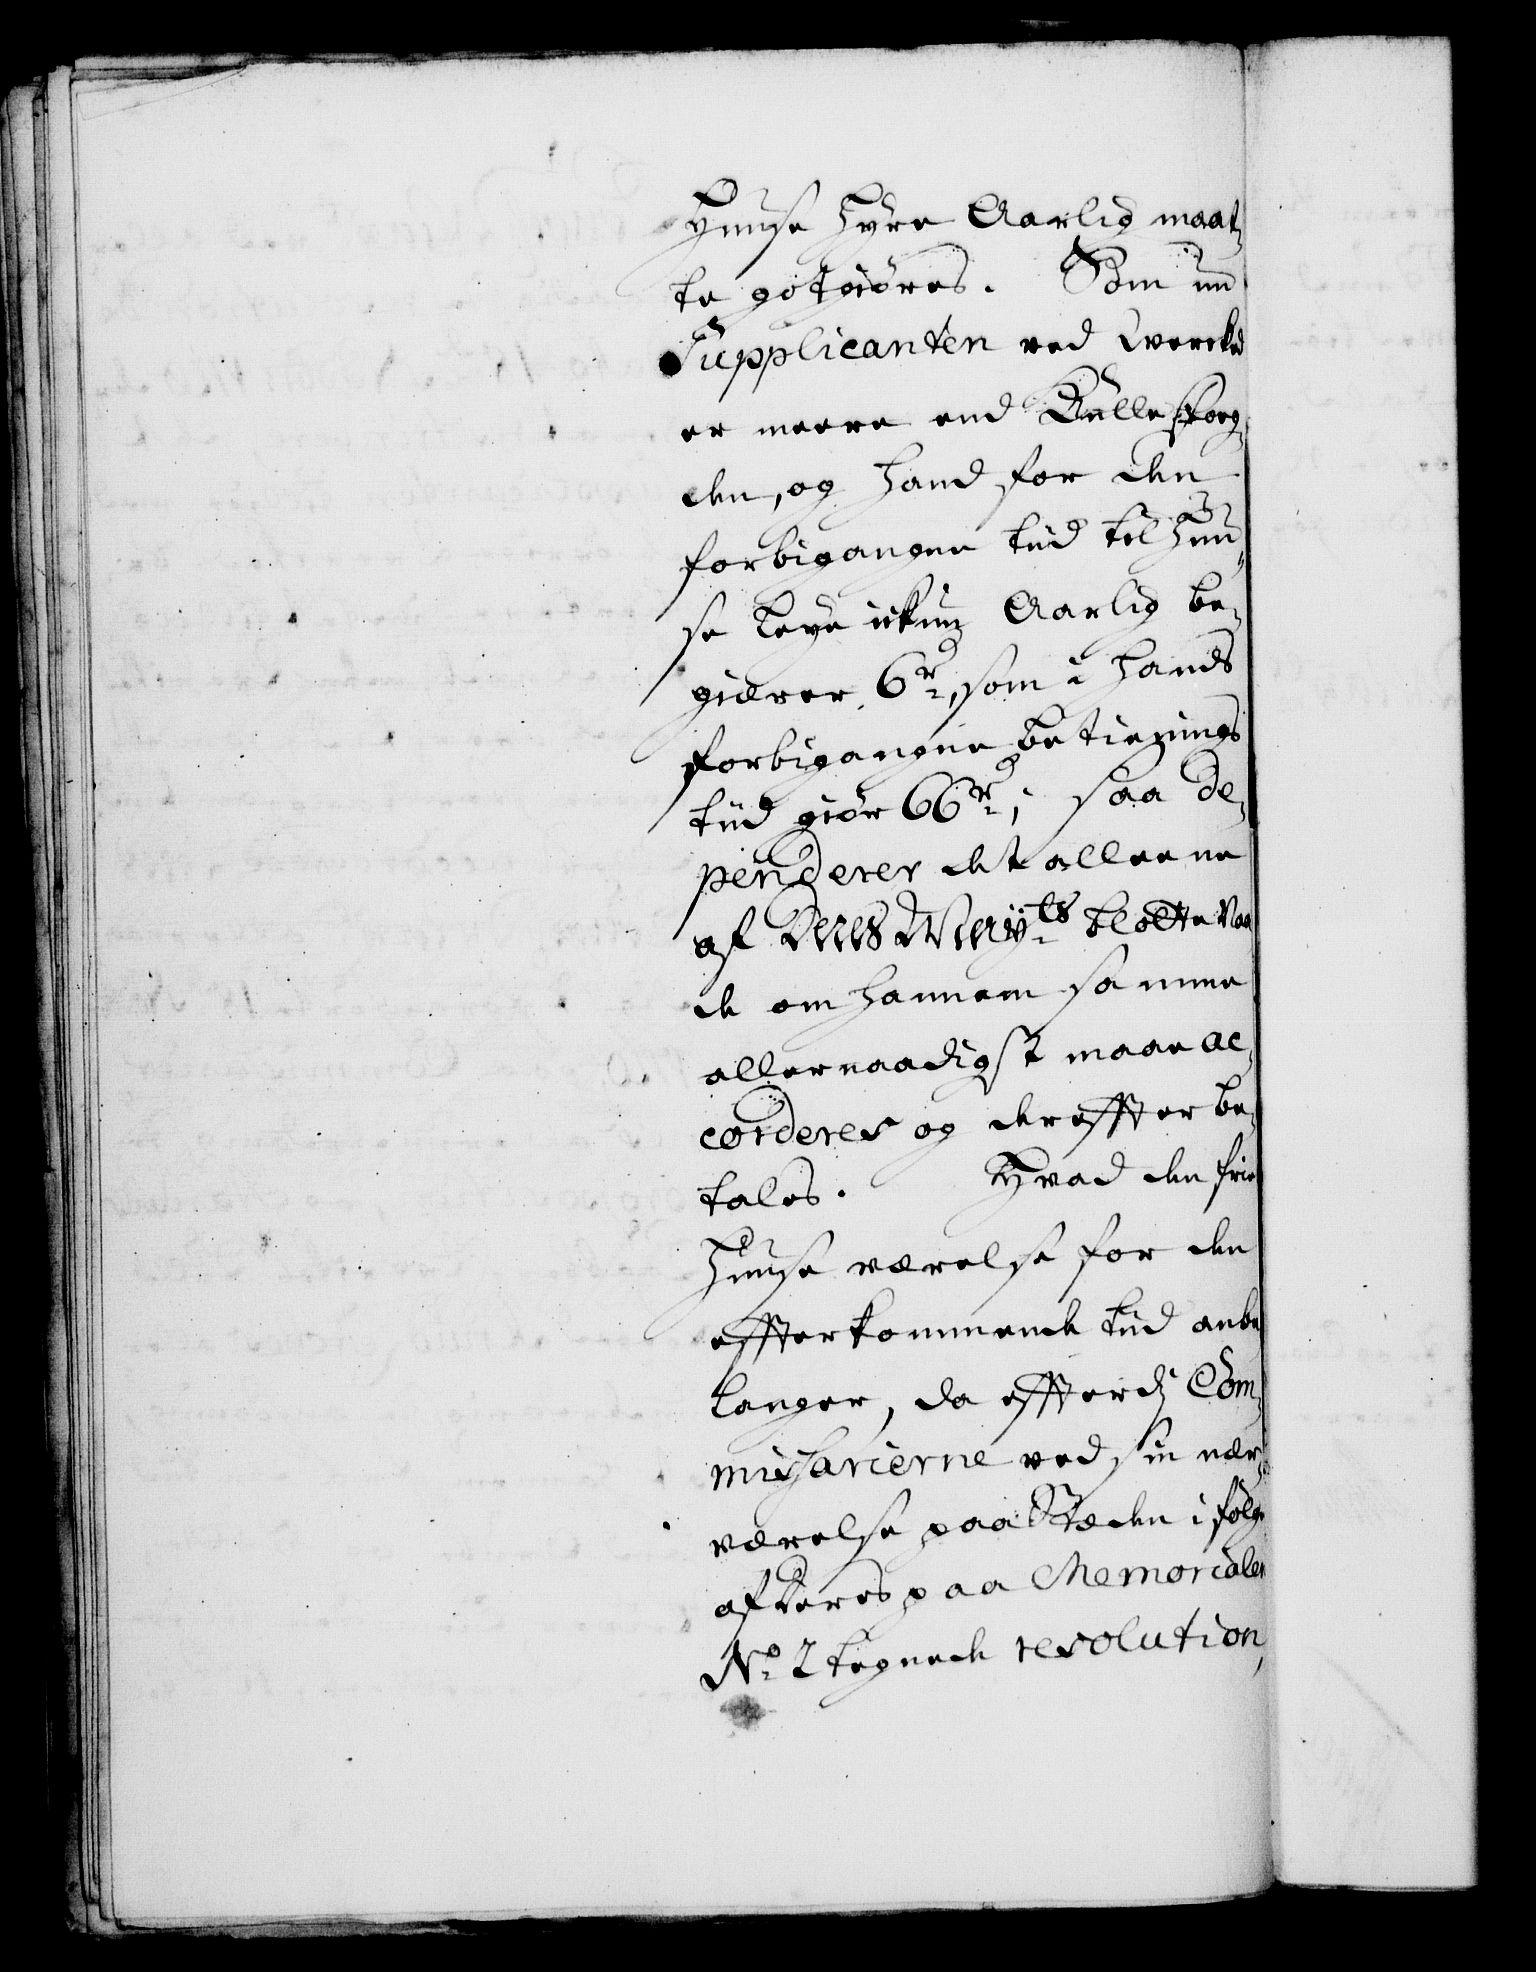 Huuse Hyre Aarlig maat¬
te godtgiöres. Som nu
Supplicanten ved Qvercked
er meere end Kulleskorg¬
den, og hand for den
forbigangne tiid til Huu¬
se Leye ickun Aarlig be¬
giærer 6rd, som i hands
forbigangne betienings
tiid giör 66rd; saa de¬
penderer det alleene
af Deres Mayts blotte Naa
de om hannem samme
allernaadigst maae ac¬
corderes og dereffter be¬
tales. Hvad den frie
Huuse værelse for den
effterkommende tiid anbe
langer, da effterdj Com¬
missarierne ved sin nær¬
værelse paa Stæden i fölge
af deres paa Memorialen
No 2 tegnede resolution,